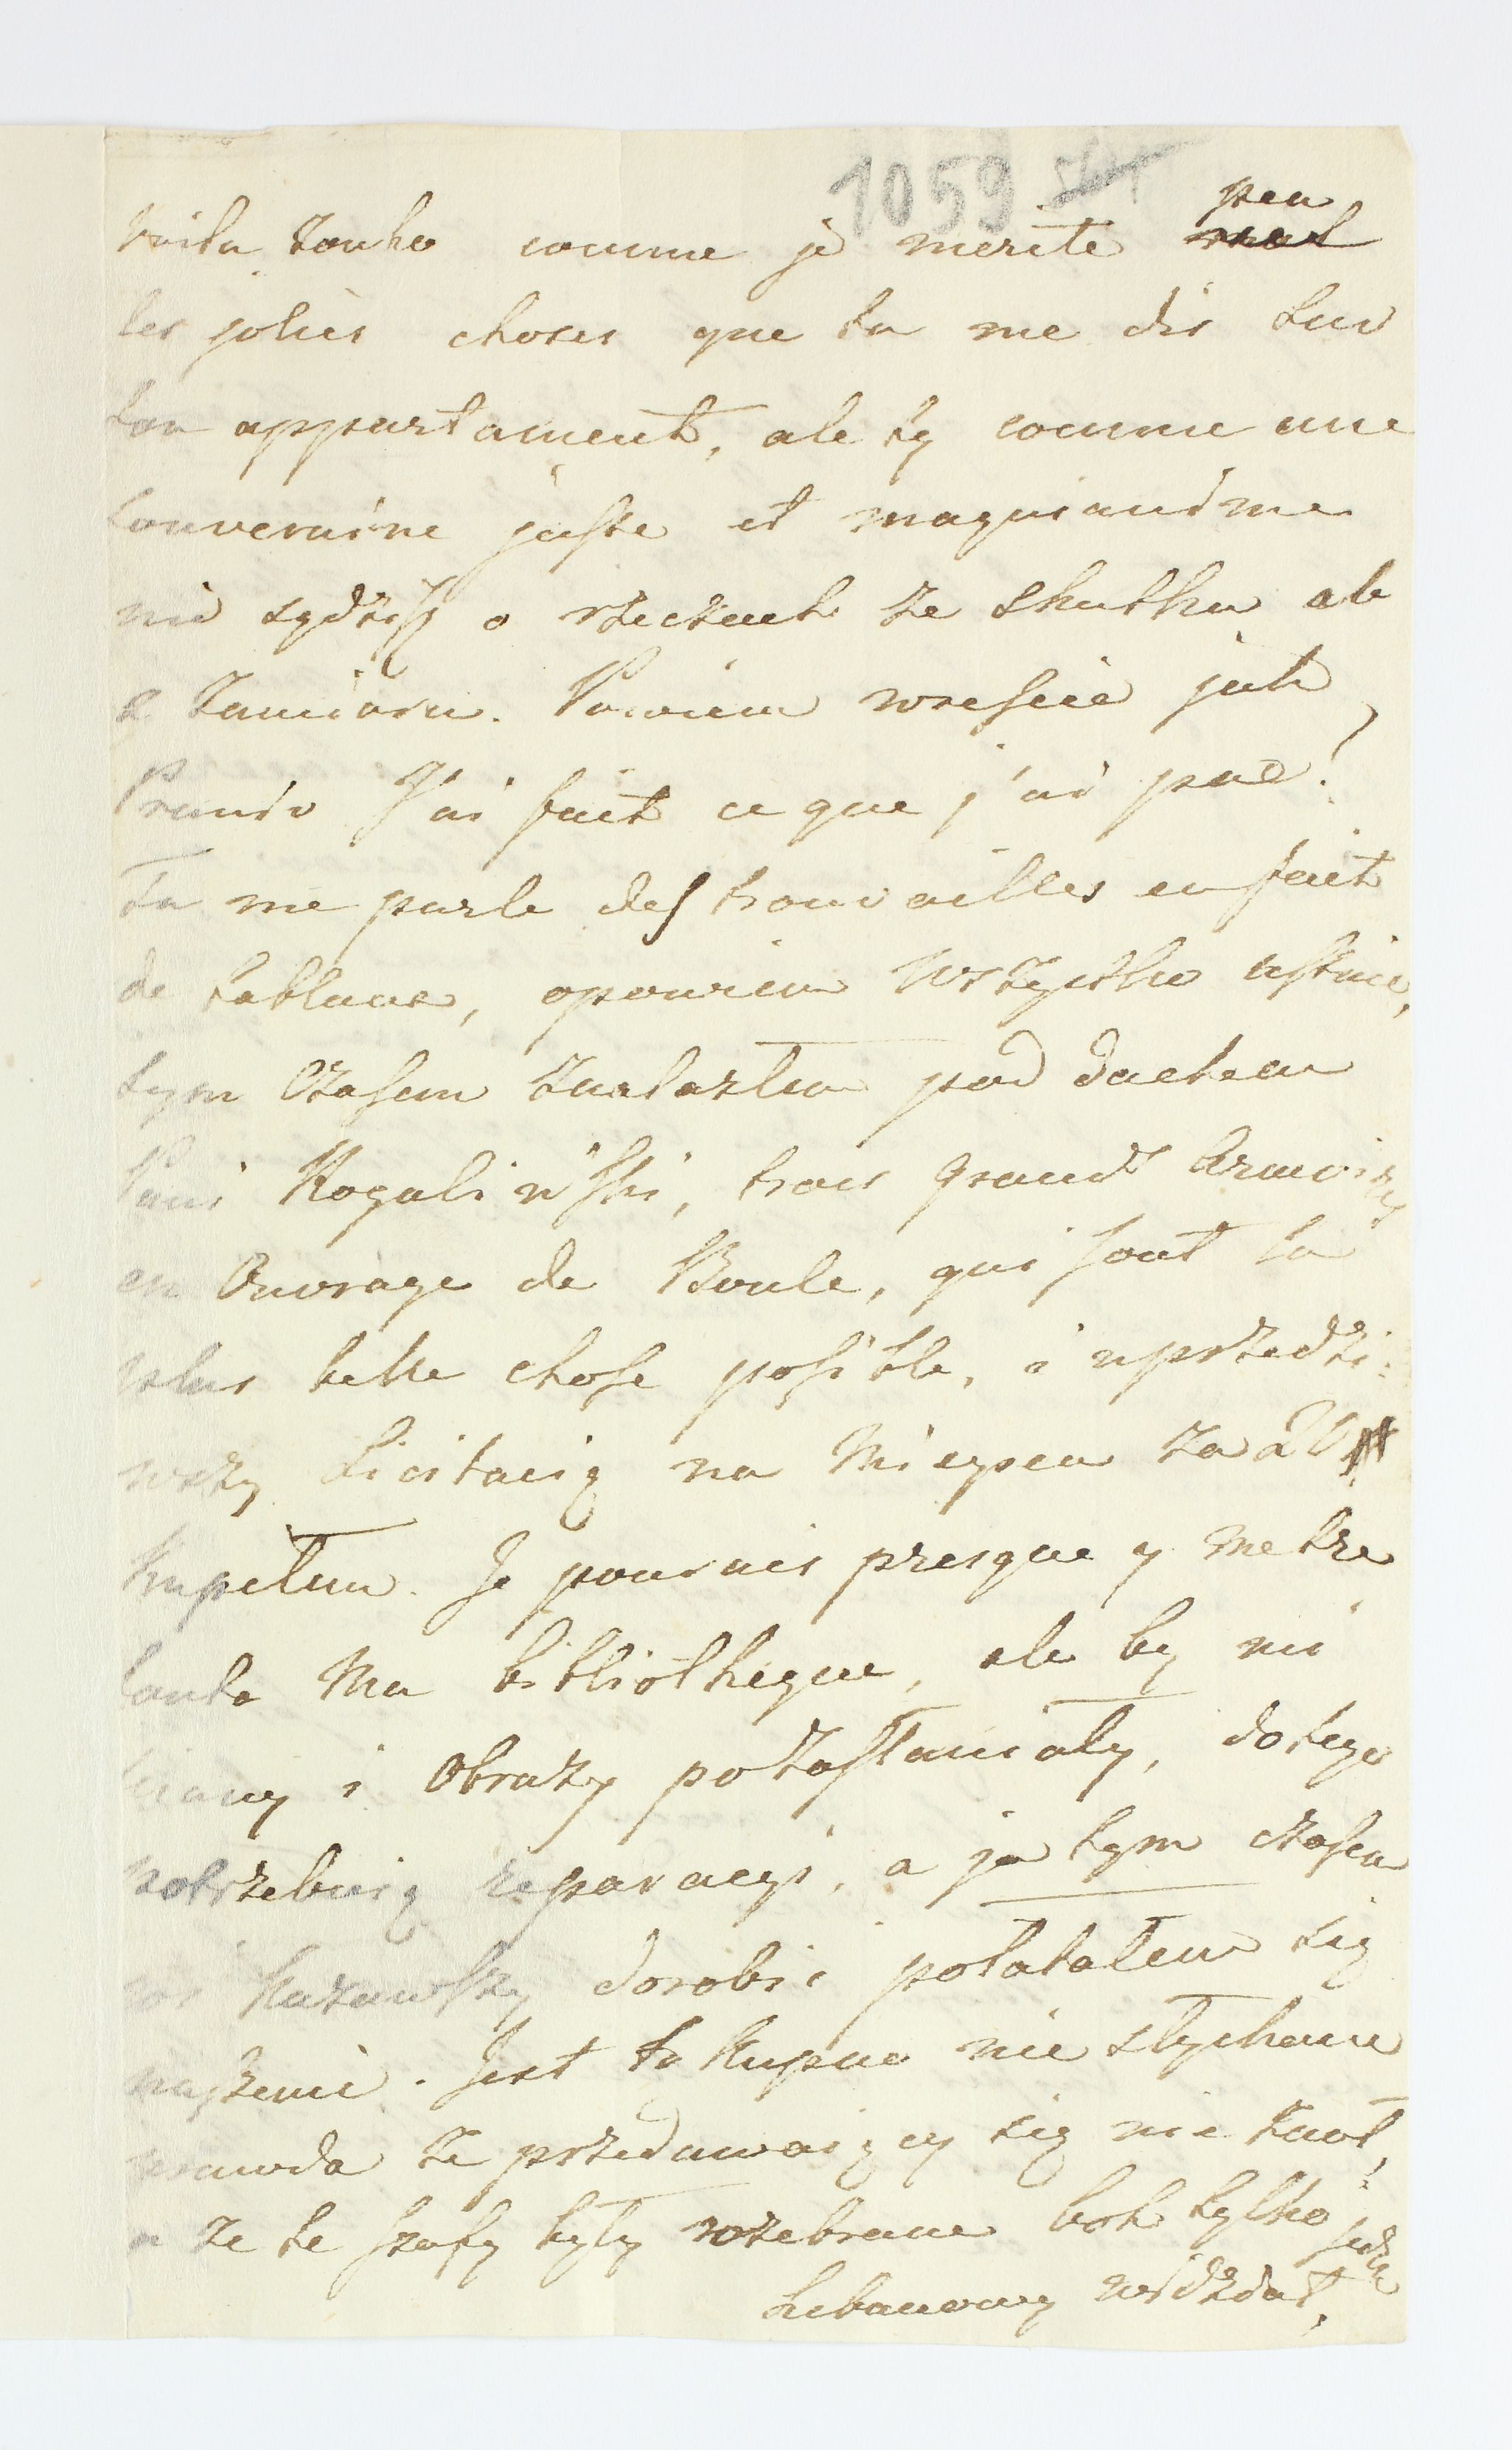 1059
peu
Voila Zonko comme je merite mal
les jolies choses que tu me dis sur
ton appartament, ale ty comme une
souveraine juste et magnianime
nie sądzisz o rzeczach ze skutku ale
z zamiaru. Powiem wreszcie jak
J'ai fait ce que j'ai pue!
Tu me parle des trouvailles en fait
de tableaux, opowiem wszystko ustnie,
tym czasem znalazłem pod dachem
Pani Rogaliński, trois grand Armoires
en Ouvrage de Boule, qui sont la
plus belle chose posible, i uprzedzi:
wszy Licitacią na Mieyscu za 20 #
kupiłem. Je pourais presque y metre
toute Ma bibliotheque, ale by mi
ściany i Obrazy pozasłaniały, do tego
potrzebuią reparacyi, a ja tym czasem
dorobić połatałem się
. Jest to kupno nie słychane
prawda że przedawaiący się nie znał,
a że te szafy były rozebrane bok tylko jeden
hebanowy widział,